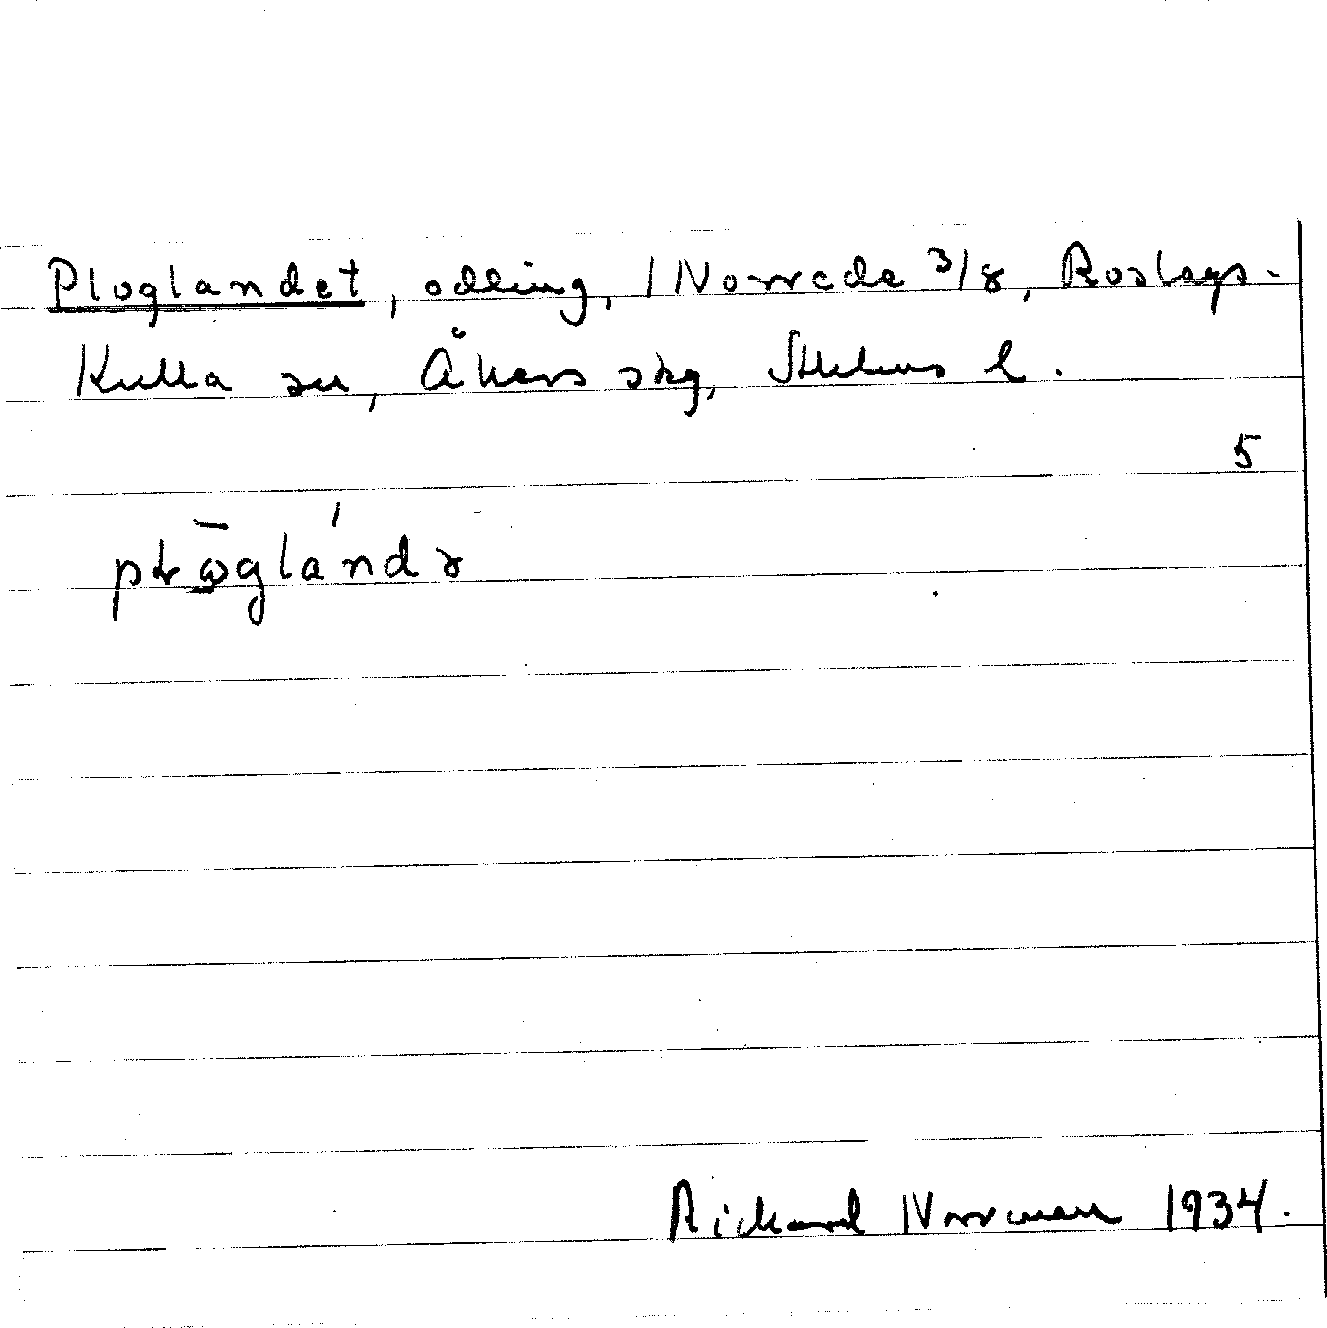 Ploglandet, odling, Norreda 3/8, Roslags-
Kulla sn, Åkers skg, Sthlms l.
5
Rickard Norrman 1934.